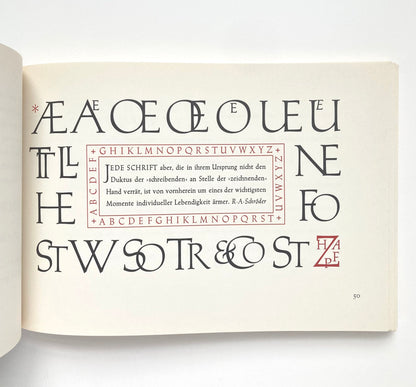 *ÆAE ŒŒ OE LEEU LE
TTLL
HE
+GHIKLMNOPQRSTUVWXYZ+
ABCDEF
JEDE SCHRIFT aber, die in ihrem Ursprung nicht den
Duktus der »schreibenden« an Stelle der »zeichnenden«
Hand verrät, ist von vornherein um eines der wichtigsten
Momente individueller Lebendigkeit ärmer. R·A·Schröder
UVWXYZ
+ABCDEFGHIKLMNOPQRST
NE
FO
ST W SO TR & CO ST
50